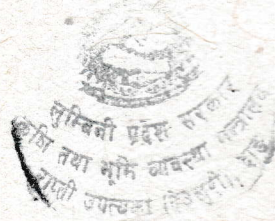 लुम्बिनी प्रदेश सरकार
कृषि तथा भूमि व्यवस्था मन्त्रालय
राप्ती उपत्यका (देउखुरी), दाङ